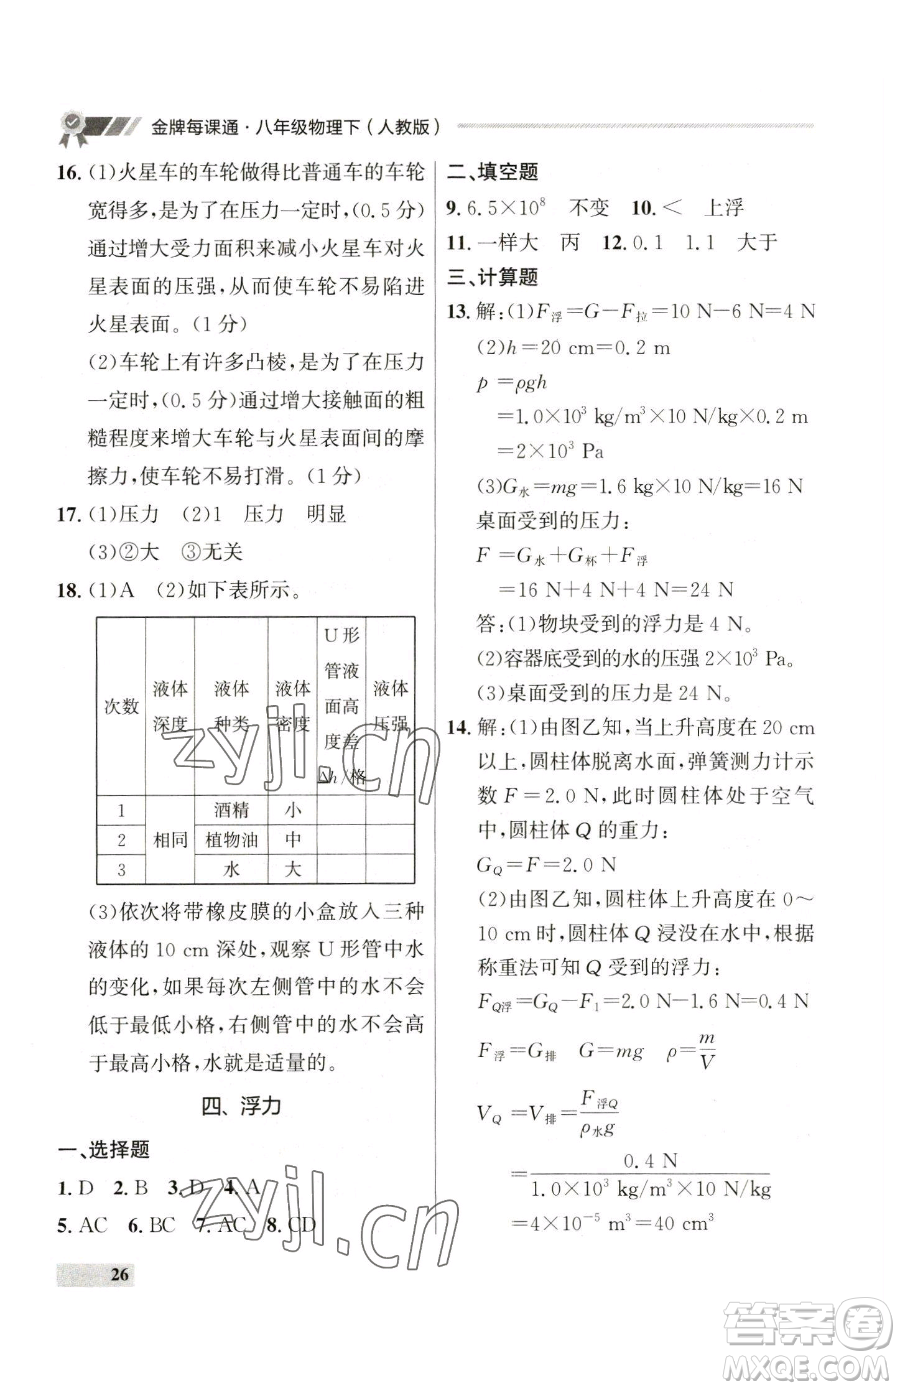 金牌每课通·八年级物理下(人教版)
16. (1)火星车的车轮做得比普通车的车轮
宽得多,是为了在压力一定时,(0.5分)
通过增大受力面积来减小火星车对火
星表面的压强,从而使车轮不易陷进
火星表面。(1分)
(2)车轮上有许多凸棱,是为了在压力
一定时,(0.5分)通过增大接触面的粗
糙程度来增大车轮与火星表面间的摩
擦力,使车轮不易打滑。(1分)
17. (1)压力 (2)1 压力 明显
(3)②大 ③无关
18. (1)A (2)如下表所示。
次数 液体深度 液体种类 液体密度 U形管液面高度差Δh/格 液体压强
1 相同 酒精 小
2 植物油 中
3 水 大
(3)依次将带橡皮膜的小盒放入三种
液体的10 cm深处,观察U形管中水
的变化,如果每次左侧管中的水不会
低于最小格,右侧管中的水不会高
于最高小格,水就是适量的。
四、浮力
一、选择题
1. D 2. B 3. D 4. A
5. AC 6. BC 7. AC 8. CD
26
二、填空题
9. 6.5×10⁸ 不变 10. < 上浮
11. 一样大 丙 12. 0.1 1.1 大于
三、计算题
13. 解:(1)F浮=G-F拉=10 N-6 N=4 N
(2)h=20 cm=0.2 m
p=ρgh
=1.0×10³ kg/m³×10 N/kg×0.2 m
=2×10³ Pa
(3)G水=mg=1.6 kg×10 N/kg=16 N
桌面受到的压力:
F=G水+G杯+F浮
=16 N+4 N+4 N=24 N
答:(1)物块受到的浮力是4 N。
(2)容器底受到的水的压强2×10³ Pa。
(3)桌面受到的压力是24 N。
14. 解:(1)由图乙知,当上升高度在20 cm
以上时,圆柱体脱离水面,弹簧测力计示
数F=2.0 N,此时圆柱体处于空气
中,圆柱体Q的重力:
GQ=F=2.0 N
(2)由图乙知,圆柱体上升高度在0~
10 cm时,圆柱体Q浸没在水中,根据
称重法可知Q受到的浮力:
FQ浮=GQ-F1=2.0 N-1.6 N=0.4 N
F浮=G排 G=mg ρ=m/V
VQ=V排=F浮Q/ρ水g
=0.4 N/1.0×10³ kg/m³×10 N/kg
=4×10⁻⁵ m³=40 cm³
zyjl.cn
zyjl.cn
答案圈
MXQE.COM